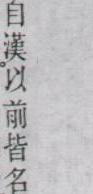 自漢以前皆名